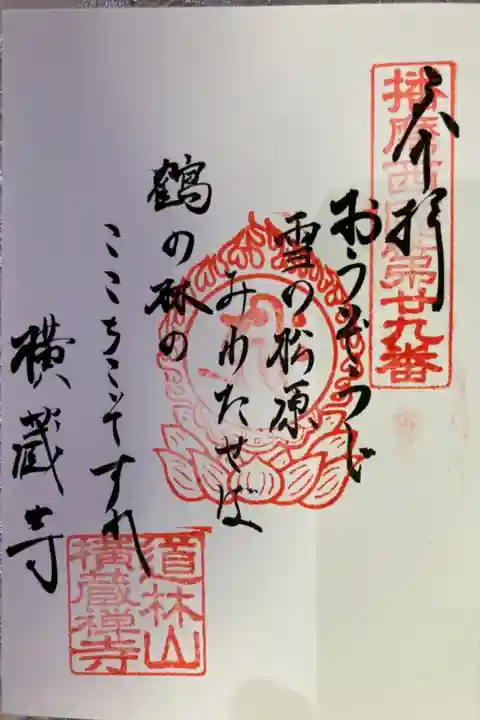 播磨西国第廿九番
奉拝
おうざうじ
雪の松原
みわたせば
鶴の林の
ここちこそすれ
横蔵寺
道林山
横蔵禅寺